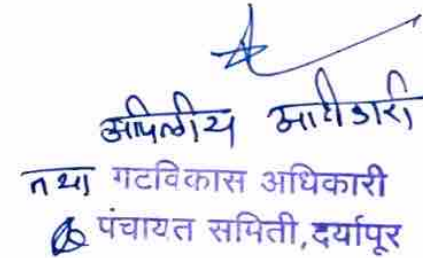 अपिलीय अधिकारी
तथा गटविकास अधिकारी
पंचायत समिती, दर्यापूर